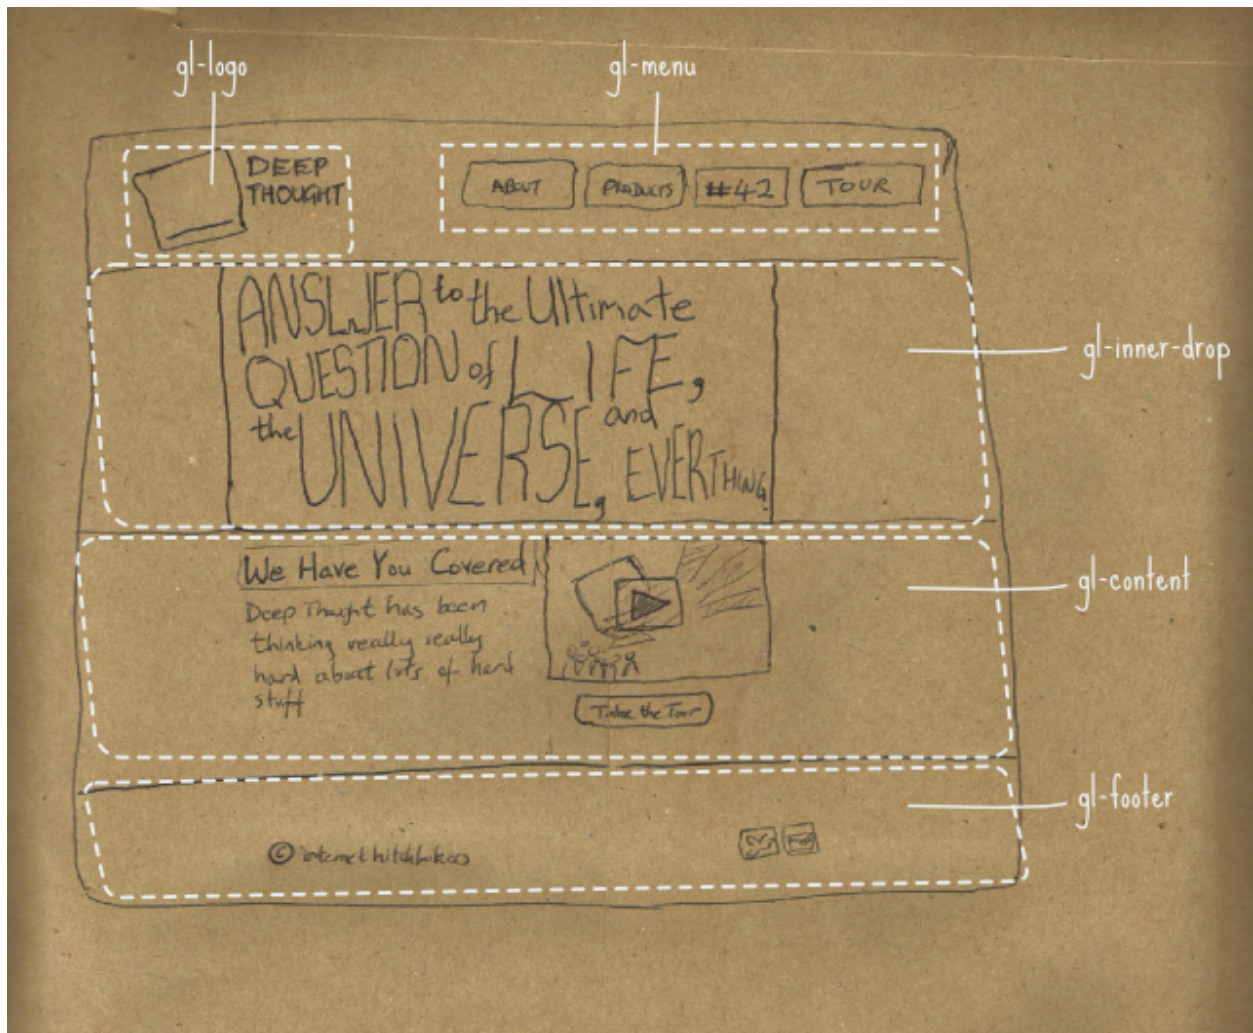 gl-logo
gl-menu
DEEP
THOUGHT
ABOUT
PRODUCTS
#42
TOUR
ANSWER to the Ultimate
QUESTION of LIFE,
the UNIVERSE, and
EVERTHING
gl-inner-drop
We Have You Covered
Deep Thought has been
thinking really really
hard about lots of hard
stuff
Take the Tour
gl-content
gl-footer
© internet hitchhikers